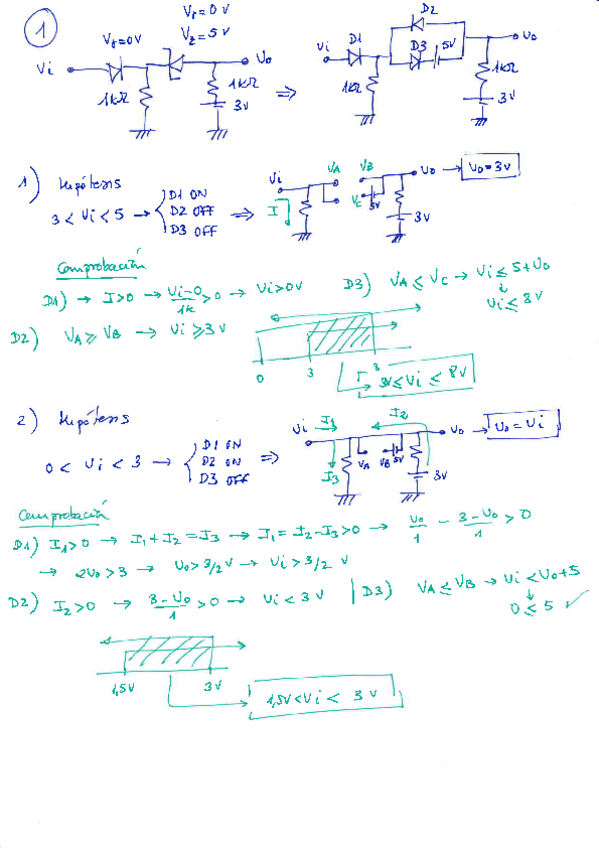 1
Vγ=0V
Vγ=0V
Vz=5V
Vi
Vo
1kΩ
1kΩ
3V
⇒
Vi
D1
D2
D3
5V
Vo
1kΩ
1kΩ
3V
1) Hipótesis
3 < Vi < 5 → { D1 ON
D2 OFF
D3 OFF
⇒
Vi
I
VA
VB
VC
5V
Vo → Vo=3V
3V
Comprobación
D1) → I>0 → Vi-0/1k >0 → Vi>0V
D3) VA ≤ VC → Vi ≤ 5+Vo
Vi ≤ 8V
D2) VA ≥ VB → Vi ≥ 3V
0 3 8
3V ≤ Vi ≤ 8V
2) Hipótesis
0 < Vi < 3 → { D1 ON
D2 ON
D3 OFF
⇒
Vi
I1
I2
I3
VA
VB
5V
Vo → Vo = Vi
3V
Comprobación
D1) I1>0 → I1+I2 = I3 → I1 = I2-I3>0 → Vo/1 - 3-Vo/1 > 0
→ 2Vo>3 → Vo>3/2V → Vi>3/2 V
D2) I2>0 → 3-Vo/1 >0 → Vi<3V
D3) VA ≤ VB → Vi < Vo+5
0 ≤ 5 ✓
1,5V 3V
1,5V<Vi< 3V